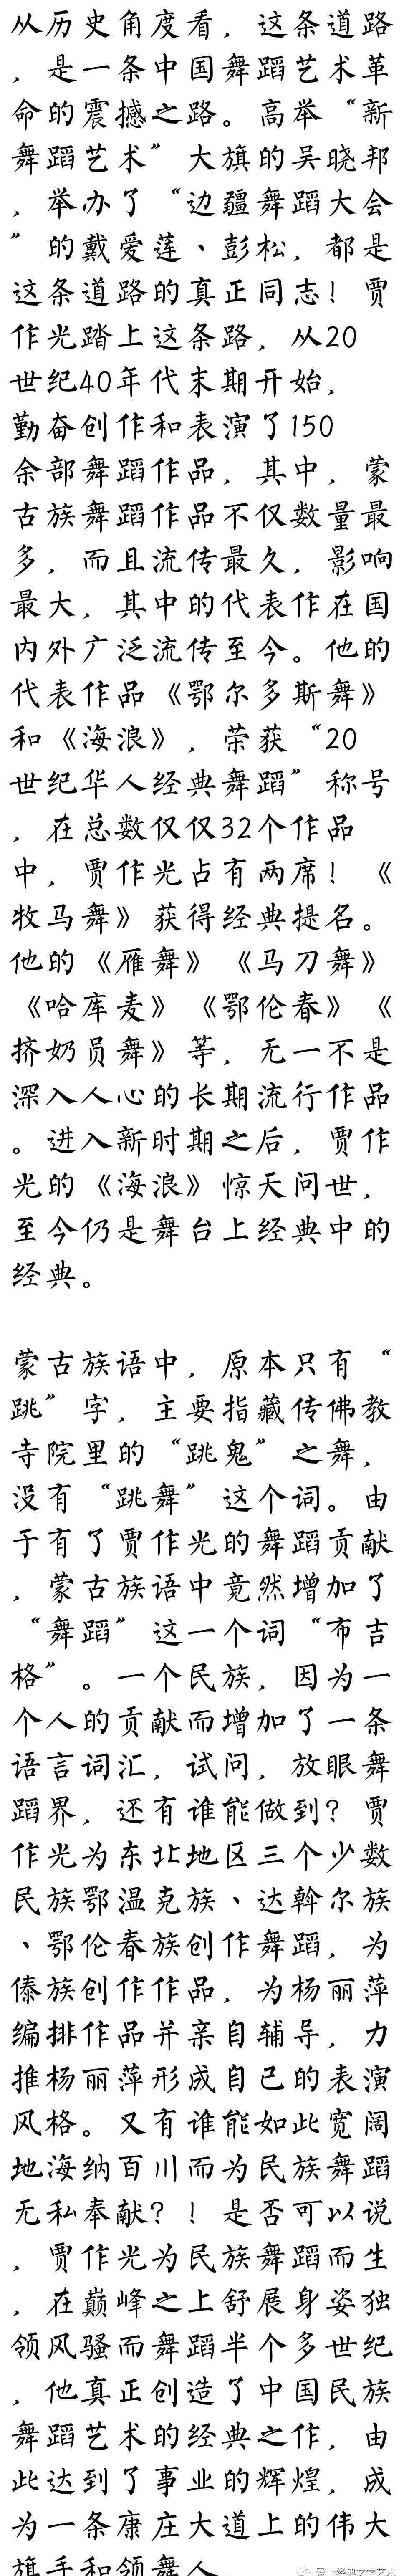 从历史角度看，这条道路
，是一条中国舞蹈艺术革
命的震撼之路。高举“新
舞蹈艺术”大旗的吴晓邦
，举办了“边疆舞蹈大会
”的戴爱莲、彭松，都是
这条道路的真正同志！贾
作光踏上这条路，从20
世纪40年代末期开始，
勤奋创作和表演了150
余部舞蹈作品，其中，蒙
古族舞蹈作品不仅数量最
多，而且流传最久，影响
最大，其中的代表作在国
内外广泛流传至今。他的
代表作品《鄂尔多斯舞》
和《海浪》，荣获“20
世纪华人经典舞蹈”称号
，在总数仅仅32个作品
中，贾作光占有两席！《
牧马舞》获得经典提名。
他的《雁舞》《马刀舞》
《哈库麦》《鄂伦春》《
挤奶员舞》等，无一不是
深入人心的长期流行作品
。进入新时期之后，贾作
光的《海浪》惊天问世，
至今仍是舞台上经典中的
经典。
蒙古族语中，原本只有“
跳”字，主要指藏传佛教
寺院里的“跳鬼”之舞，
没有“跳舞”这个词。由
于有了贾作光的舞蹈贡献
，蒙古族语中竟然增加了
“舞蹈”这一个词“布吉
格”。一个民族，因为一
个人的贡献而增加了一条
语言词汇，试问，放眼舞
蹈界，还有谁能做到？贾
作光为东北地区三个少数
民族鄂温克族、达斡尔族
、鄂伦春族创作舞蹈，为
傣族创作作品，为杨丽萍
编排作品并亲自辅导，力
推杨丽萍形成自己的表演
风格。又有谁能如此宽阔
地海纳百川而为民族舞蹈
无私奉献？！是否可以说
，贾作光为民族舞蹈而生
，在巅峰之上舒展身姿独
领风骚而舞蹈半个多世纪
，他真正创造了中国民族
舞蹈艺术的经典之作，由
此达到了事业的辉煌，成
为一条康庄大道上的伟大
旗手和领舞人
爱上经典文学艺术